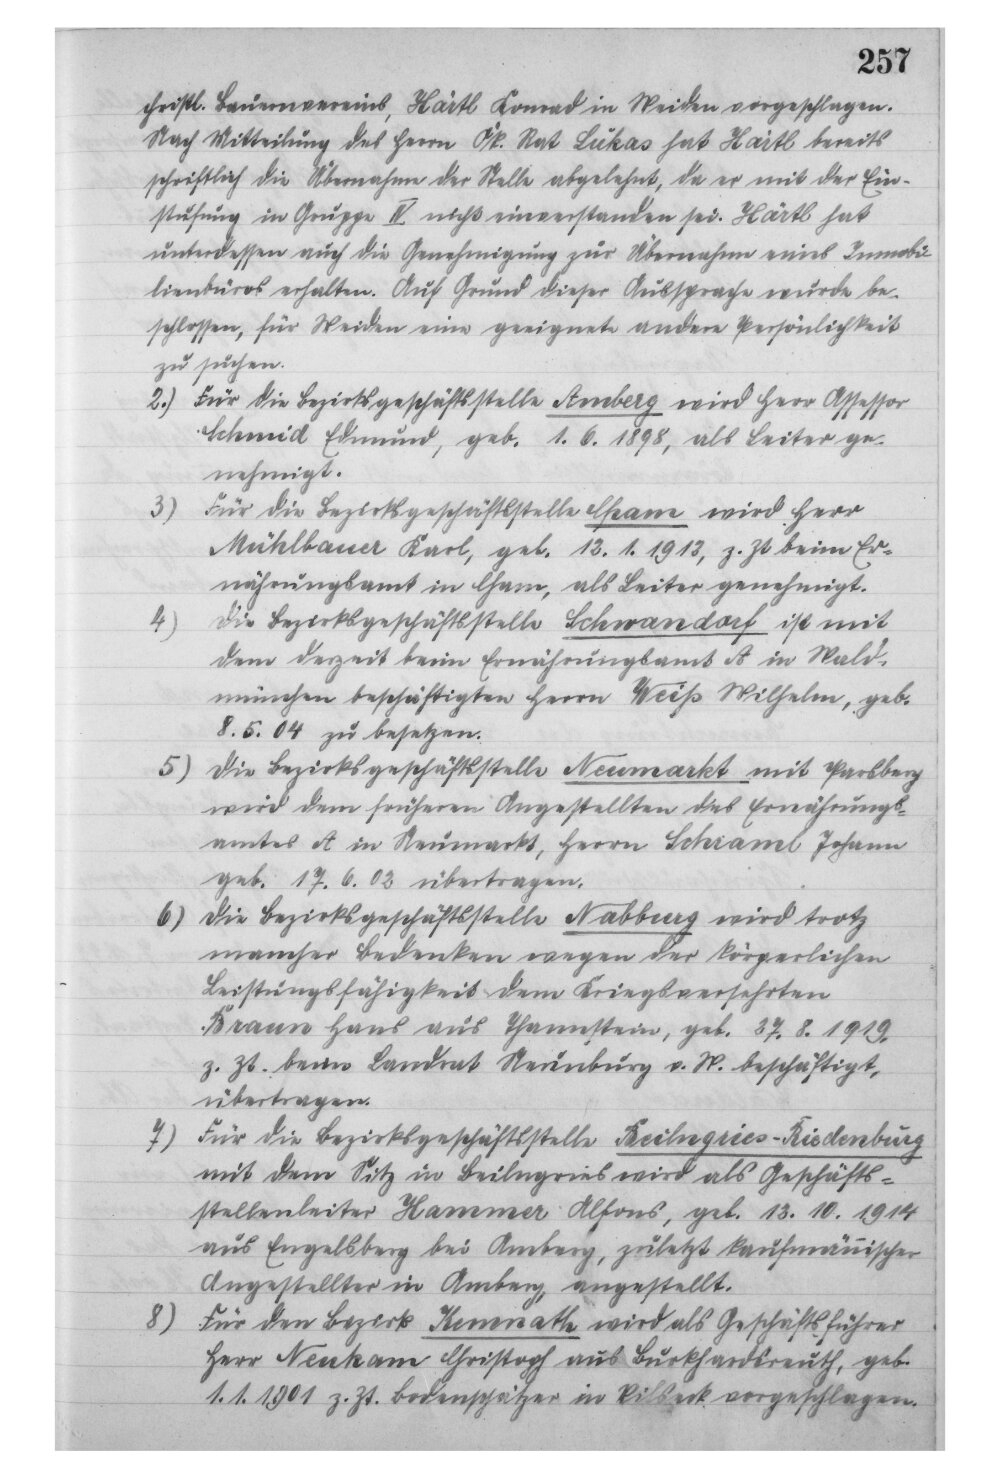 257
christl. Bauernvereins, Härtl Konrad in Weiden vorgeschlagen.
Nach Mitteilung des Herrn Ök. Rat Lukas hat Härtl bereits
schriftlich die Übernahme der Stelle abgelehnt, da er mit der Ein-
stufung in Gruppe IV nicht einverstanden sei. Härtl hat
unterdessen auch die Genehmigung zur Übernahme eines Immobi-
lienbüros erhalten. Auf Grund dieser Aussprache wurde be-
schlossen, für Weiden eine geeignete andere Persönlichkeit
zu suchen.
2.) Für die Bezirksgeschäftsstelle Amberg wird Herr Assessor
Schmid Edmund, geb. 1. 6. 1898, als Leiter ge-
nehmigt.
3) Für die Bezirksgeschäftsstelle Cham wird Herr
Mühlbauer Karl, geb. 12. 1. 1912, z. Zt beim Er-
nährungsamt in Cham, als Leiter genehmigt.
4) Die Bezirksgeschäftsstelle Schwandorf ist mit
dem derzeit beim Ernährungsamt A in Wald-
münchen beschäftigten Herrn Weiß Wilhelm, geb.
8. 5. 04 zu besetzen.
5) Die Bezirksgeschäftsstelle Neumarkt mit Parsberg
wird dem früheren Angestellten des Ernährungs-
amtes A in Neumarkt, Herrn Schraml Johann
geb. 17. 6. 02 übertragen.
6) Die Bezirksgeschäftsstelle Nabburg wird trotz
mancher Bedenken wegen der körperlichen
Leistungsfähigkeit dem Kriegsversehrten
Braun Hans aus Thannstein, geb. 27. 8. 1919,
z. Zt. beim Landrat Neunburg v. W. beschäftigt,
übertragen.
7) Für die Bezirksgeschäftsstelle Beilngries-Riedenburg
mit dem Sitz in Beilngries wird als Geschäfts-
stellenleiter Hammer Alfons, geb. 13. 10. 1914
aus Engelsberg bei Amberg, zuletzt kaufmännischer
Angestellter in Amberg, angestellt.
8) Für den Bezirk Kemnath wird als Geschäftsführer
Herr Neukam Christoph aus Burkhardsreuth, geb.
1. 1. 1901 z. Zt. Bodenschätzer in Vilseck vorgeschlagen.